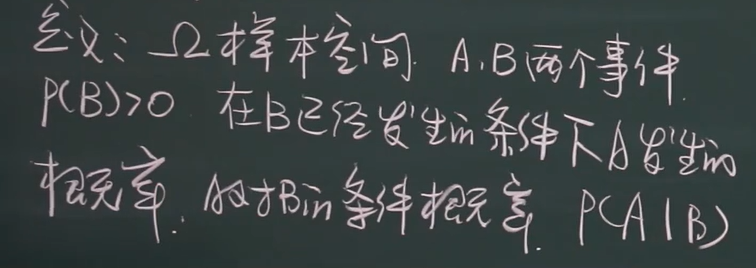 定义: Ω样本空间. A,B两个事件.
P(B)>0 在B已经发生的条件下A发生的
概率. A对B的条件概率. P(A|B)